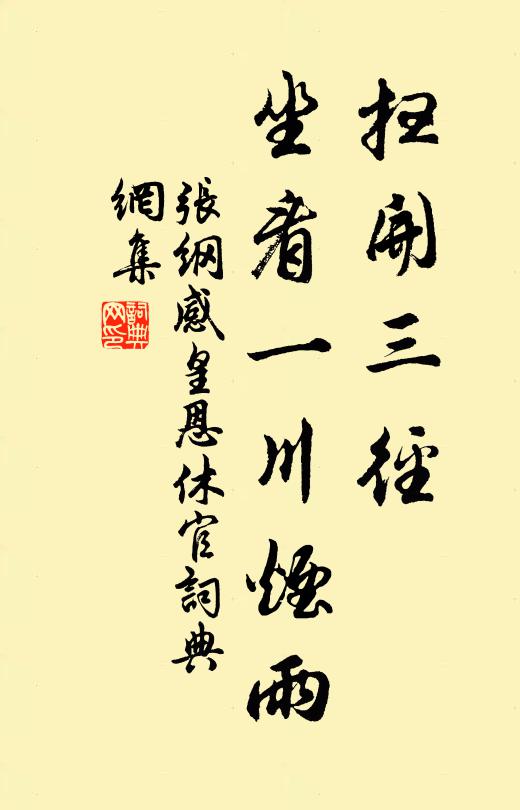 扫開三徑
坐看一川煙雨
張綱感皇恩休官詞典
網集
詞典
网印